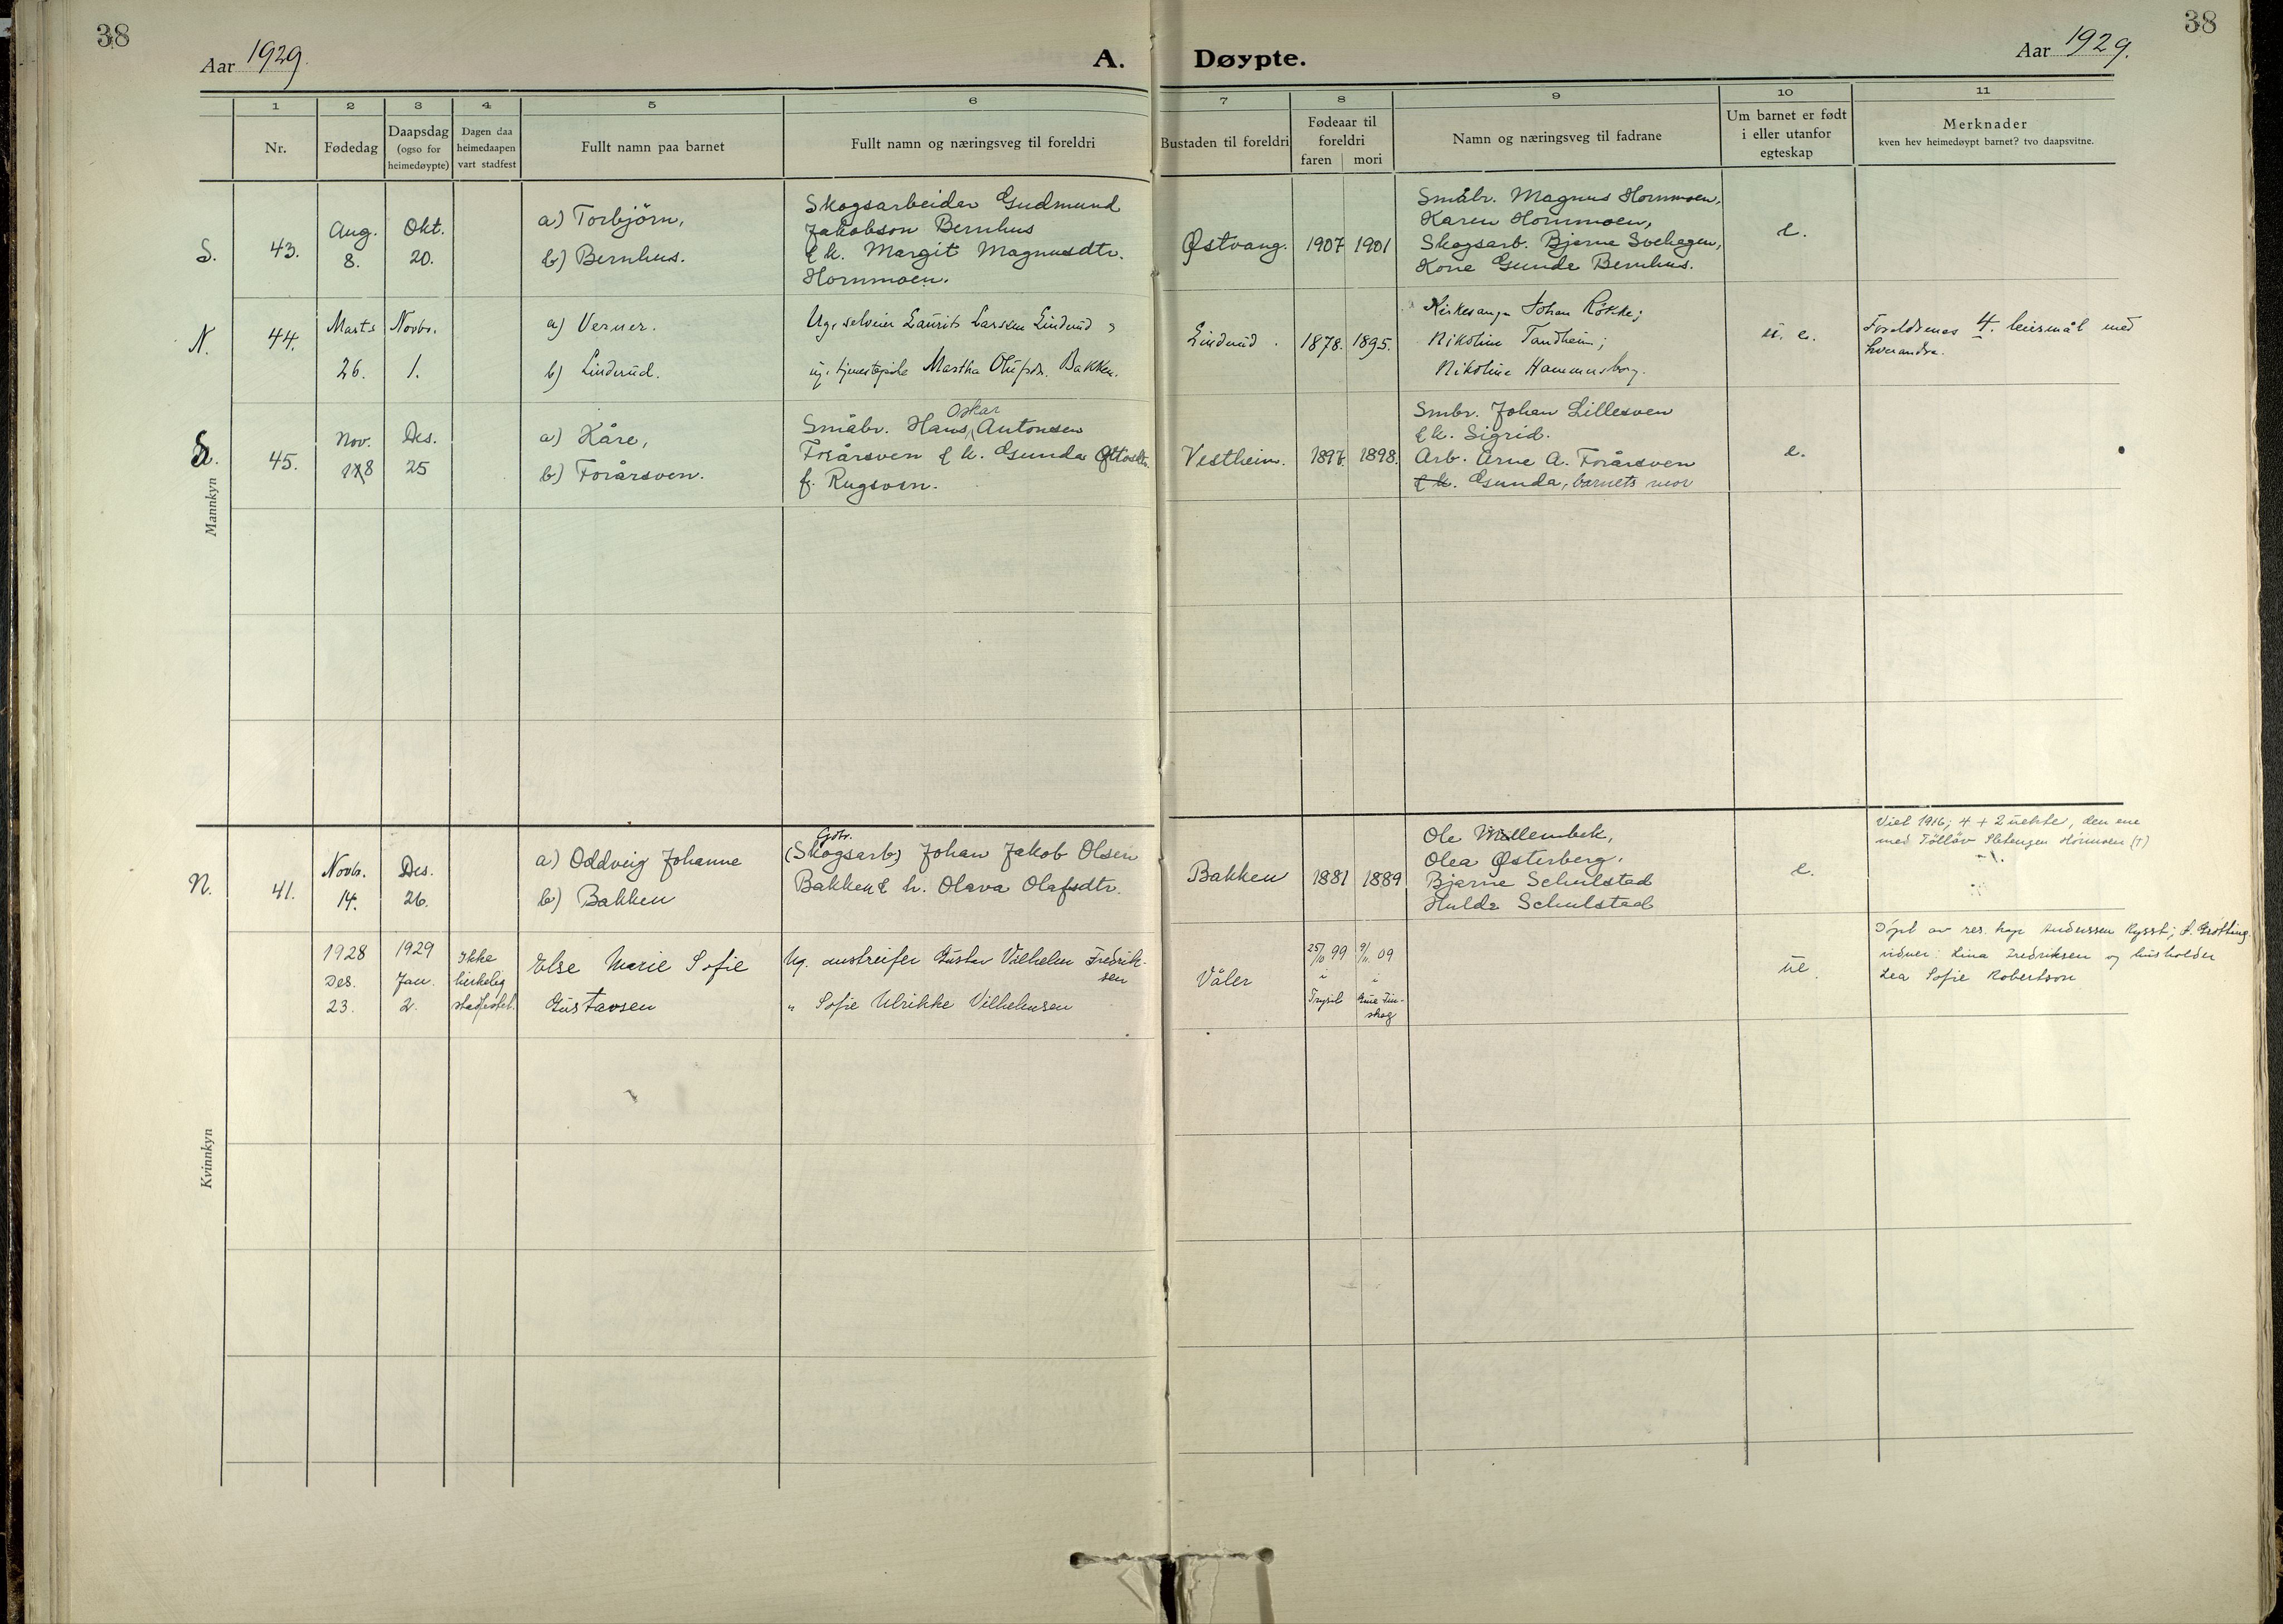 38
38
Aar 1929.
A. Døypte.
Aar 1929.
1 2 3 4 5 6 7 8 9 10 11
Nr.
Fødedag
Daapsdag
(ogso for
heimedøypte)
Dagen daa
heimedaapen
vart stadfest
Fullt namn paa barnet
Fullt namn og næringsveg til foreldri
Bustaden til foreldri
Fødeaar til
foreldri
faren mori
Namn og næringsveg til fadrane
Um barnet er født
i eller utanfor
egteskap
Merknader
kven hev heimedøypt barnet? tvo daapsvitne.
Mannkyn
S.
43.
Aug.
8.
Okt.
20.
a) Torbjörn,
b) Bernhus.
Skogsarbeider Gudmund
Jakobson Bernhus
& h. Margit Magnusdtr.
Hornmoen.
Østvang.
1907 1901
Småbr. Magnus Hornmoen,
Karen Hornmoen,
Skogsarb. Bjarne Svehagen,
Kone Gunda Bernhus.
e.
N.
44.
Marts
26.
Novbr.
1.
a) Verner.
b) Linderud.
Ug. selveier Laurits Larssen Linderud og
ug. tjenestepike Martha Olufsdr. Bakken.
Linderud.
1878. 1895.
Kirkesanger Johan Rökke;
Nikoline Tandheim;
Nikoline Hammersborg.
u. e.
Foreldrenes 4. leiermål med
hverandre.
S.
45.
Nov.
Des.
25
a) Kåre,
b) Forårsven.
Oskar
Småbr. Hans Antonsen
Forårsven & h. Gunda Ottosdtr.
f. Rugsven.
Vestheim.
1897. 1898.
Smbr. Johan Lillesven
& h. Sigrid.
Arb. Arne A. Forårsven
& h. Gunda, barnets mor
e.
Kvinnkyn
N.
41.
Novbr.
14.
Des.
26.
a) Oddveig Johanne
b) Bakken
Gbr.
(Skogsarb) Johan Jakob Olsen
Bakken & h. Olava Olafsdtr.
Bakken
1881 1889
Ole Møllembek,
Olea Østerberg,
Bjarne Schulstad
Hulda Schulstad
e.
Viet 1916; 4 + 2 uekte, den ene
med
1928
Des.
23.
1929
Jan.
2.
Ikke
kirkelig
stadfestet.
Else Marie Sofie
Gustavsen
Ug. omstreifer Gustav Vilhelm Fredrik-
sen
" Sofie Ulrikke Vilhelmsen
Våler
25/10 99 9/11 09
i i
Trysil Grue Fin-
skog
ue.
Døpt av res. kap. Anderssen Rysst; S. Grøtting.
vidner: Lina Fredriksen og husholder
Lea Sofie Robertson